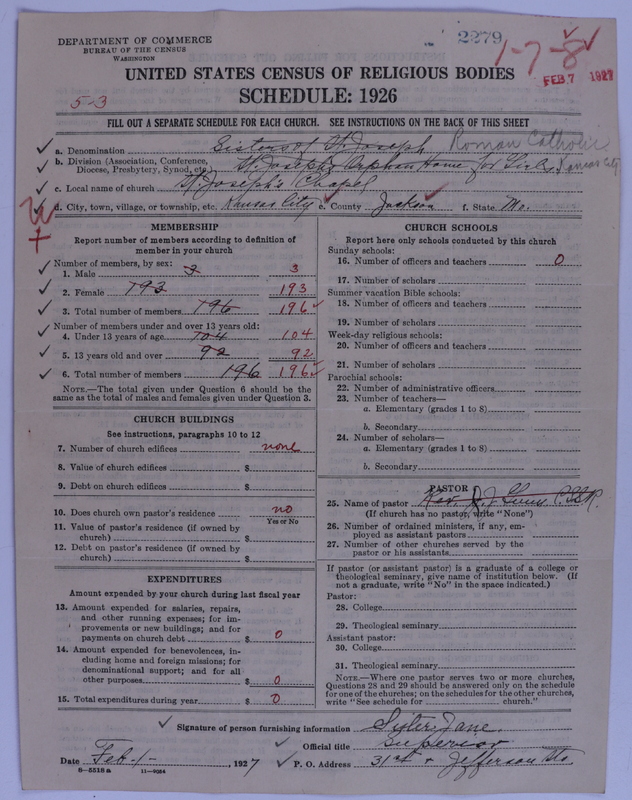 DEPARTMENT OF COMMERCE
BUREAU OF THE CENSUS
WASHINGTON
2279
1-7-8
FEB. 7 1927
UNITED STATES CENSUS OF RELIGIOUS BODIES
SCHEDULE: 1926
5-3
FILL OUT A SEPARATE SCHEDULE FOR EACH CHURCH. SEE INSTRUCTIONS ON THE BACK OF THIS SHEET
a. Denomination Sisters of St. Joseph Roman Catholic
b. Division (Association, Conference, Diocese, Presbytery, Synod, etc. St. Joseph's Orphan Home for Girls, Kansas City
c. Local name of church St. Joseph's Chapel
d. City, town, village, or township, etc. Kansas City e. County Jackson f. State Mo.
MEMBERSHIP
Report number of members according to definition of
member in your church
Number of members, by sex:
1. Male 3 3
2. Female 193 193
3. Total number of members 196 196
Number of members under and over 13 years old:
4. Under 13 years of age 104 104
5. 13 years old and over 92 92
6. Total number of members 196 196
NOTE.—The total given under Question 6 should be the
same as the total of males and females given under Question 3.
CHURCH BUILDINGS
See instructions, paragraphs 10 to 12
7. Number of church edifices none
8. Value of church edifices $
9. Debt on church edifices $
10. Does church own pastor's residence no
Yes or No
11. Value of pastor's residence (if owned by
church) $
12. Debt on pastor's residence (if owned by
church) $
EXPENDITURES
Amount expended by your church during last fiscal year
13. Amount expended for salaries, repairs,
and other running expenses; for im-
provements or new buildings; and for
payments on church debt $ 0
14. Amount expended for benevolences, in-
cluding home and foreign missions; for
denominational support; and for all
other purposes $ 0
15. Total expenditures during year $ 0
CHURCH SCHOOLS
Report here only schools conducted by this church
Sunday schools:
16. Number of officers and teachers 0
17. Number of scholars
Summer vacation Bible schools:
18. Number of officers and teachers
19. Number of scholars
Week-day religious schools:
20. Number of officers and teachers
21. Number of scholars
Parochial schools:
22. Number of administrative officers
23. Number of teachers—
a. Elementary (grades 1 to 8)
b. Secondary
24. Number of scholars—
a. Elementary (grades 1 to 8)
b. Secondary
PASTOR
25. Name of pastor Rev. J. C.SS.R.
(If church has no pastor, write "None")
26. Number of ordained ministers, if any, em-
ployed as assistant pastors
27. Number of other churches served by the
pastor or his assistants
If pastor (or assistant pastor) is a graduate of a college or
theological seminary, give name of institution below. (If
not a graduate, write "No" in the space indicated.)
Pastor:
28. College
29. Theological seminary
Assistant pastor:
30. College
31. Theological seminary
NOTE.—Where one pastor serves two or more churches,
Questions 28 and 29 should be answered only on the schedule
for one of the churches; on the schedules for the other churches,
write "See schedule for church."
Signature of person furnishing information Sister Jane
Official title Superior
Date Feb. 1-, 1927 P. O. Address 31st & Jefferson Sts.
8-5518 a 11-9054